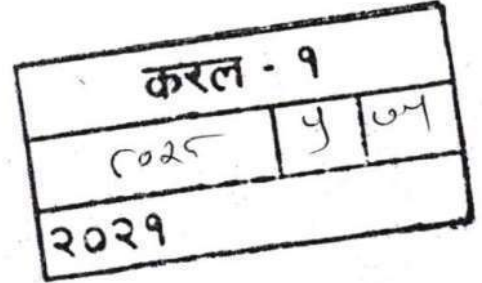 करल - १
८०२८ ५ ७५
२०२१